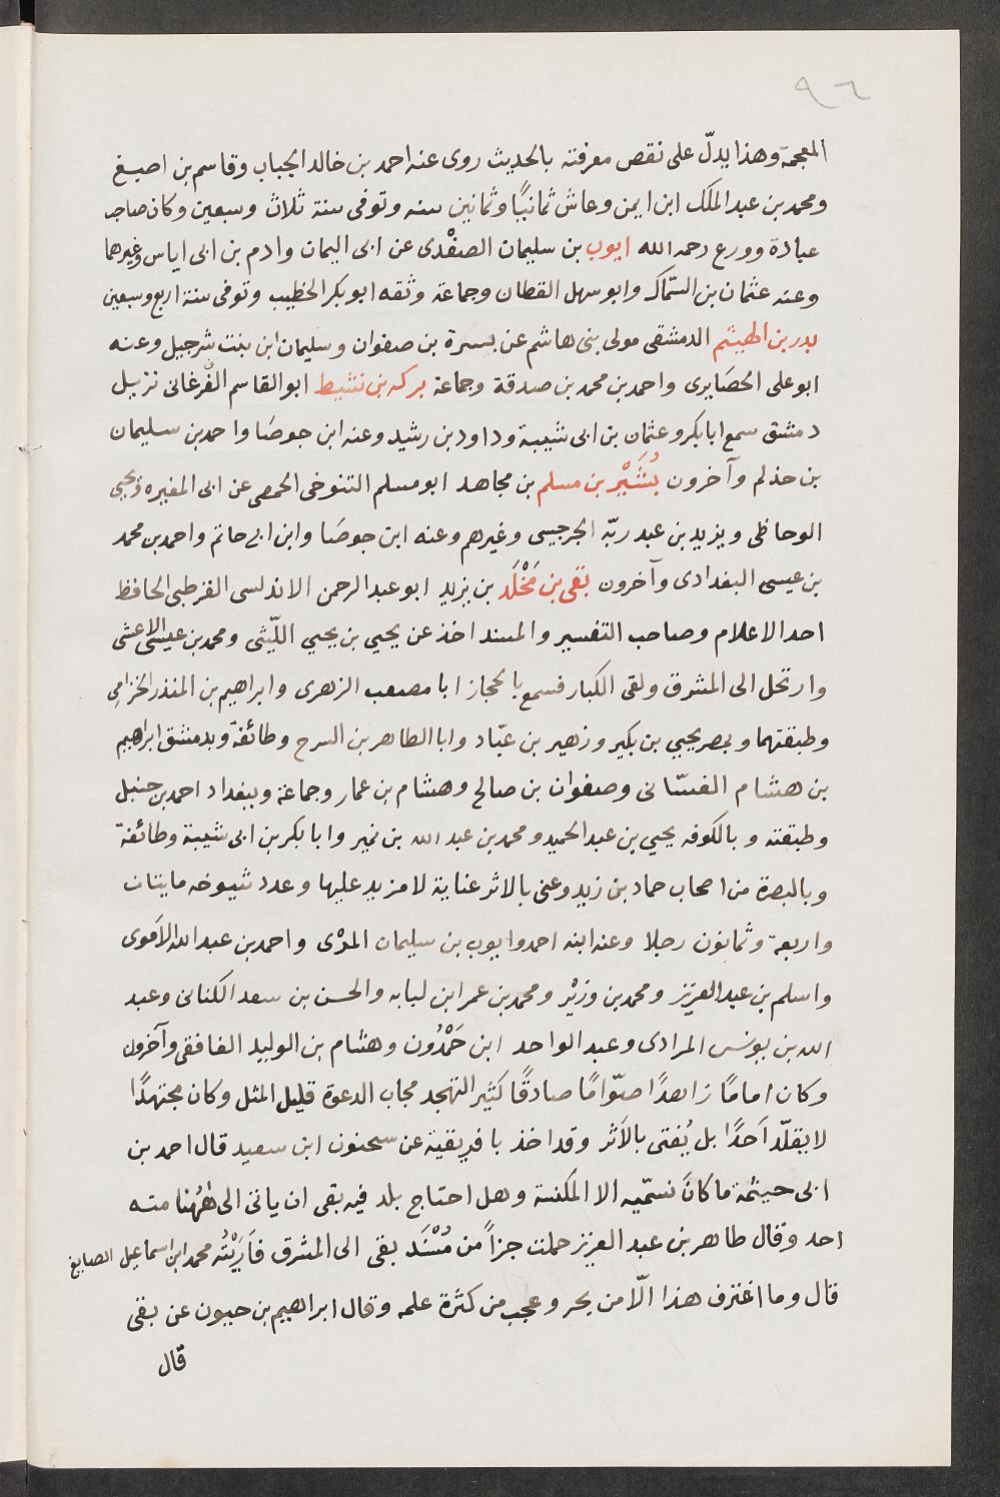 ٩٦
المعجمة وهذا يدلّ على نقص معرفته بالحديث روى عنه احمد بن خالد الجباب وقاسم بن اصبغ
ومحمد بن عبد الملك ابن ايمن وعاش ثمانيًا وثمانين سنه وتوفى سنة ثلاث وسبعين وكان صاحب
عبادة وورع رحمه الله ايوب بن سليمان الصفْدى عن ابى اليمان وادم بن ابى اياس وغيرهما
وعنه عثمان بن السمّاك وابو سهل القطان وجماعة وثقه ابو بكر الخطيب وتوفى سنة اربع وسبعين
بدر بن الهيثم الدمشقى مولى بنى هاشم عن بسرة بن صفوان وسليمان ابن بنت شرجيل وعنه
ابو على الحصَايرى واحمد بن محمد بن صدقة وجماعة بركه بن نشيط ابو القاسم الفُرغانى نزيل
دمشق سمع ابا بكر وعثمان بن ابى شيبة وداود بن رشيد وعنه ابن جوصَا واحمد بن سليمان
بن حذلم وآخرون بُشَيْر بن مسلم بن مجاهد ابو مسلم التنوخى الحمصى عن ابى المغيره ويحيى
الوحاظى ويزيد بن عبد ربّه الجرجيسى وغيرهم وعنه ابن جوصَا وابن ابي حاتم واحمد بن محمد
بن عيسى البغدادى وآخرون بقى بن مَخْلَد بن يزيد ابو عبد الرحمن الاندلسى القرطبى الحافظ
احد الاعلام وصاحب التفسير والمسند اخذ عن يحيي بن يحيي اللّيثى ومحمد بن عيسى الاعشى
وارتحل الى المشرق ولقى الكبار فسمع بالحجاز ابا مصعب الزهرى وابراهيم بن المنذر الحزامي
وطبقتهما وبمصر يحيي بن بكير وزهير بن عبّاد وابا الطاهر بن السرح وطائفة وبدمشق ابراهيم
بن هشام الغسّانى وصفوان بن صالح وهشام بن عمار وجماعة وببغداد احمد بن حنبل
وطبقته وبالكوفه يحيي بن عبد الحميد ومحمد بن عبد الله بن نمير وابا بكر بن ابى شيبة وطائفة
وبالبصرة من اصحاب حماد بن زيد وعنى بالاثر عناية لا مزيد عليها وعدد شيوخه مايتان
واربعة وثمانون رجلا وعنه ابنه احمد وايوب بن سليمان المرْى واحمد بن عبد الله الاَموى
واسلم بن عبد العزيز ومحمد بن وزيْر ومحمد بن عمر ابن لبابه والحسن بن سعد الكنانى وعبد
الله بن يونس المرادى وعبد الواحد ابن حَمْدُون وهشام بن الوليد الغافقى وآخرون
وكان امامًا زاهدًا صوّامًا صادقًا كثير التهجد مجاب الدعوة قليل المثل وكان مجتهدًا
لا يقلّد اَحدًا بل يُفتى بالاَثر وقد اخذ بافريقية عن سحنون ابن سعيد قال احمد بن
ابى حيثمة ما كانَ نسمّيه الا المكنسة وهل احتاج بلد فيه بقى ان ياتى الى هٰهُنا منه
احد وقال طاهر بن عبد العزيز حملت جزاً من مُسْنَد بقى الى المشرق فاَرَيْتُه محمد ابن اسماعيل الصايغ
قال وما اغترف هذا الّا من بحر وعجب من كثرة علمه وقال ابراهيم بن حيون عن بقى
قال